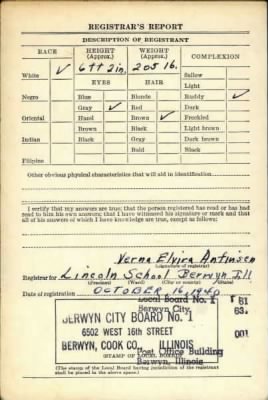 REGISTRAR'S REPORT
DESCRIPTION OF REGISTRANT
RACE HEIGHT (Approx.) WEIGHT (Approx.) COMPLEXION
White ✓ 6 ft 2 in. 205 lb. Sallow
EYES HAIR Light
Negro Blue Blonde Ruddy ✓
Gray ✓ Red Dark
Oriental Hazel Brown ✓ Freckled
Brown Black Light brown
Indian Black Gray Dark brown
Bald Black
Filipino
Other obvious physical characteristics that will aid in identification
I certify that my answers are true; that the person registered has read or has had
read to him his own answers; that I have witnessed his signature or mark and that
all of his answers of which I have knowledge are true, except as follows:
Verna Elvira
(Signature of registrar)
Registrar for Lincoln School Berwyn Ill
(Precinct) (Ward) (City or county) (State)
Date of registration OCTOBER 16, 1940
Local Board No. 1 81
Berwyn City 63.
BERWYN CITY BOARD No. 1 001
6502 WEST 16th STREET
BERWYN, COOK CO., ILLINOIS
Post Office Building
(STAMP OF LOCAL BOARD)
Berwyn, Illinois
(The stamp of the Local Board having jurisdiction of the registrant
shall be placed in the above space.)